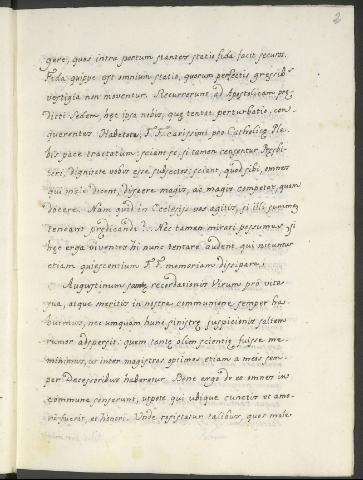 2
gere, quos intra portum stantes statio fida facit securos.
Fida quippe est omnium statio, quorum perfectis gressib9
vestigia non moventur. Recurrerunt ad Apostolicam prę
dicti Sedem, hęc ipsa nobis, quę tentat perturbatio, con
querentes. Habetote, F. F. carissimi pro Catholicę Ple
bis pace tractatum: sciant se, si tamen censentur Presbi
teri, dignitate vobis esse subjectos; sciant, quod sibi, omnes
qui male docent, discere magis, ac magis competet, quam
docere. Nam quid in Ecclesiis vos agitis, si illi summam
teneant prędicandi?... Nec tamen mirari possumus, si
hęc erga viventes hi nunc tentare audent qui nituntur
etiam quiescentium F. F. memoriam dissipare.
Augustinum sanctę recordationis Virum pro vita
sua, atque meritis in nostra communione semper ha
buimus, nec umquam hunc sinistrę suspicionis saltem
rumor adspersit: quem tantę olim scientię fuisse me
minimus, ut inter magistros optimos etiam a meis sem
per Decessoribus haberetur. Bene ergo de eo omnes in
commune senserunt, utpote qui ubique cunctis et amo
ri fuerit, et honori. Unde resistatur talibus, quos male